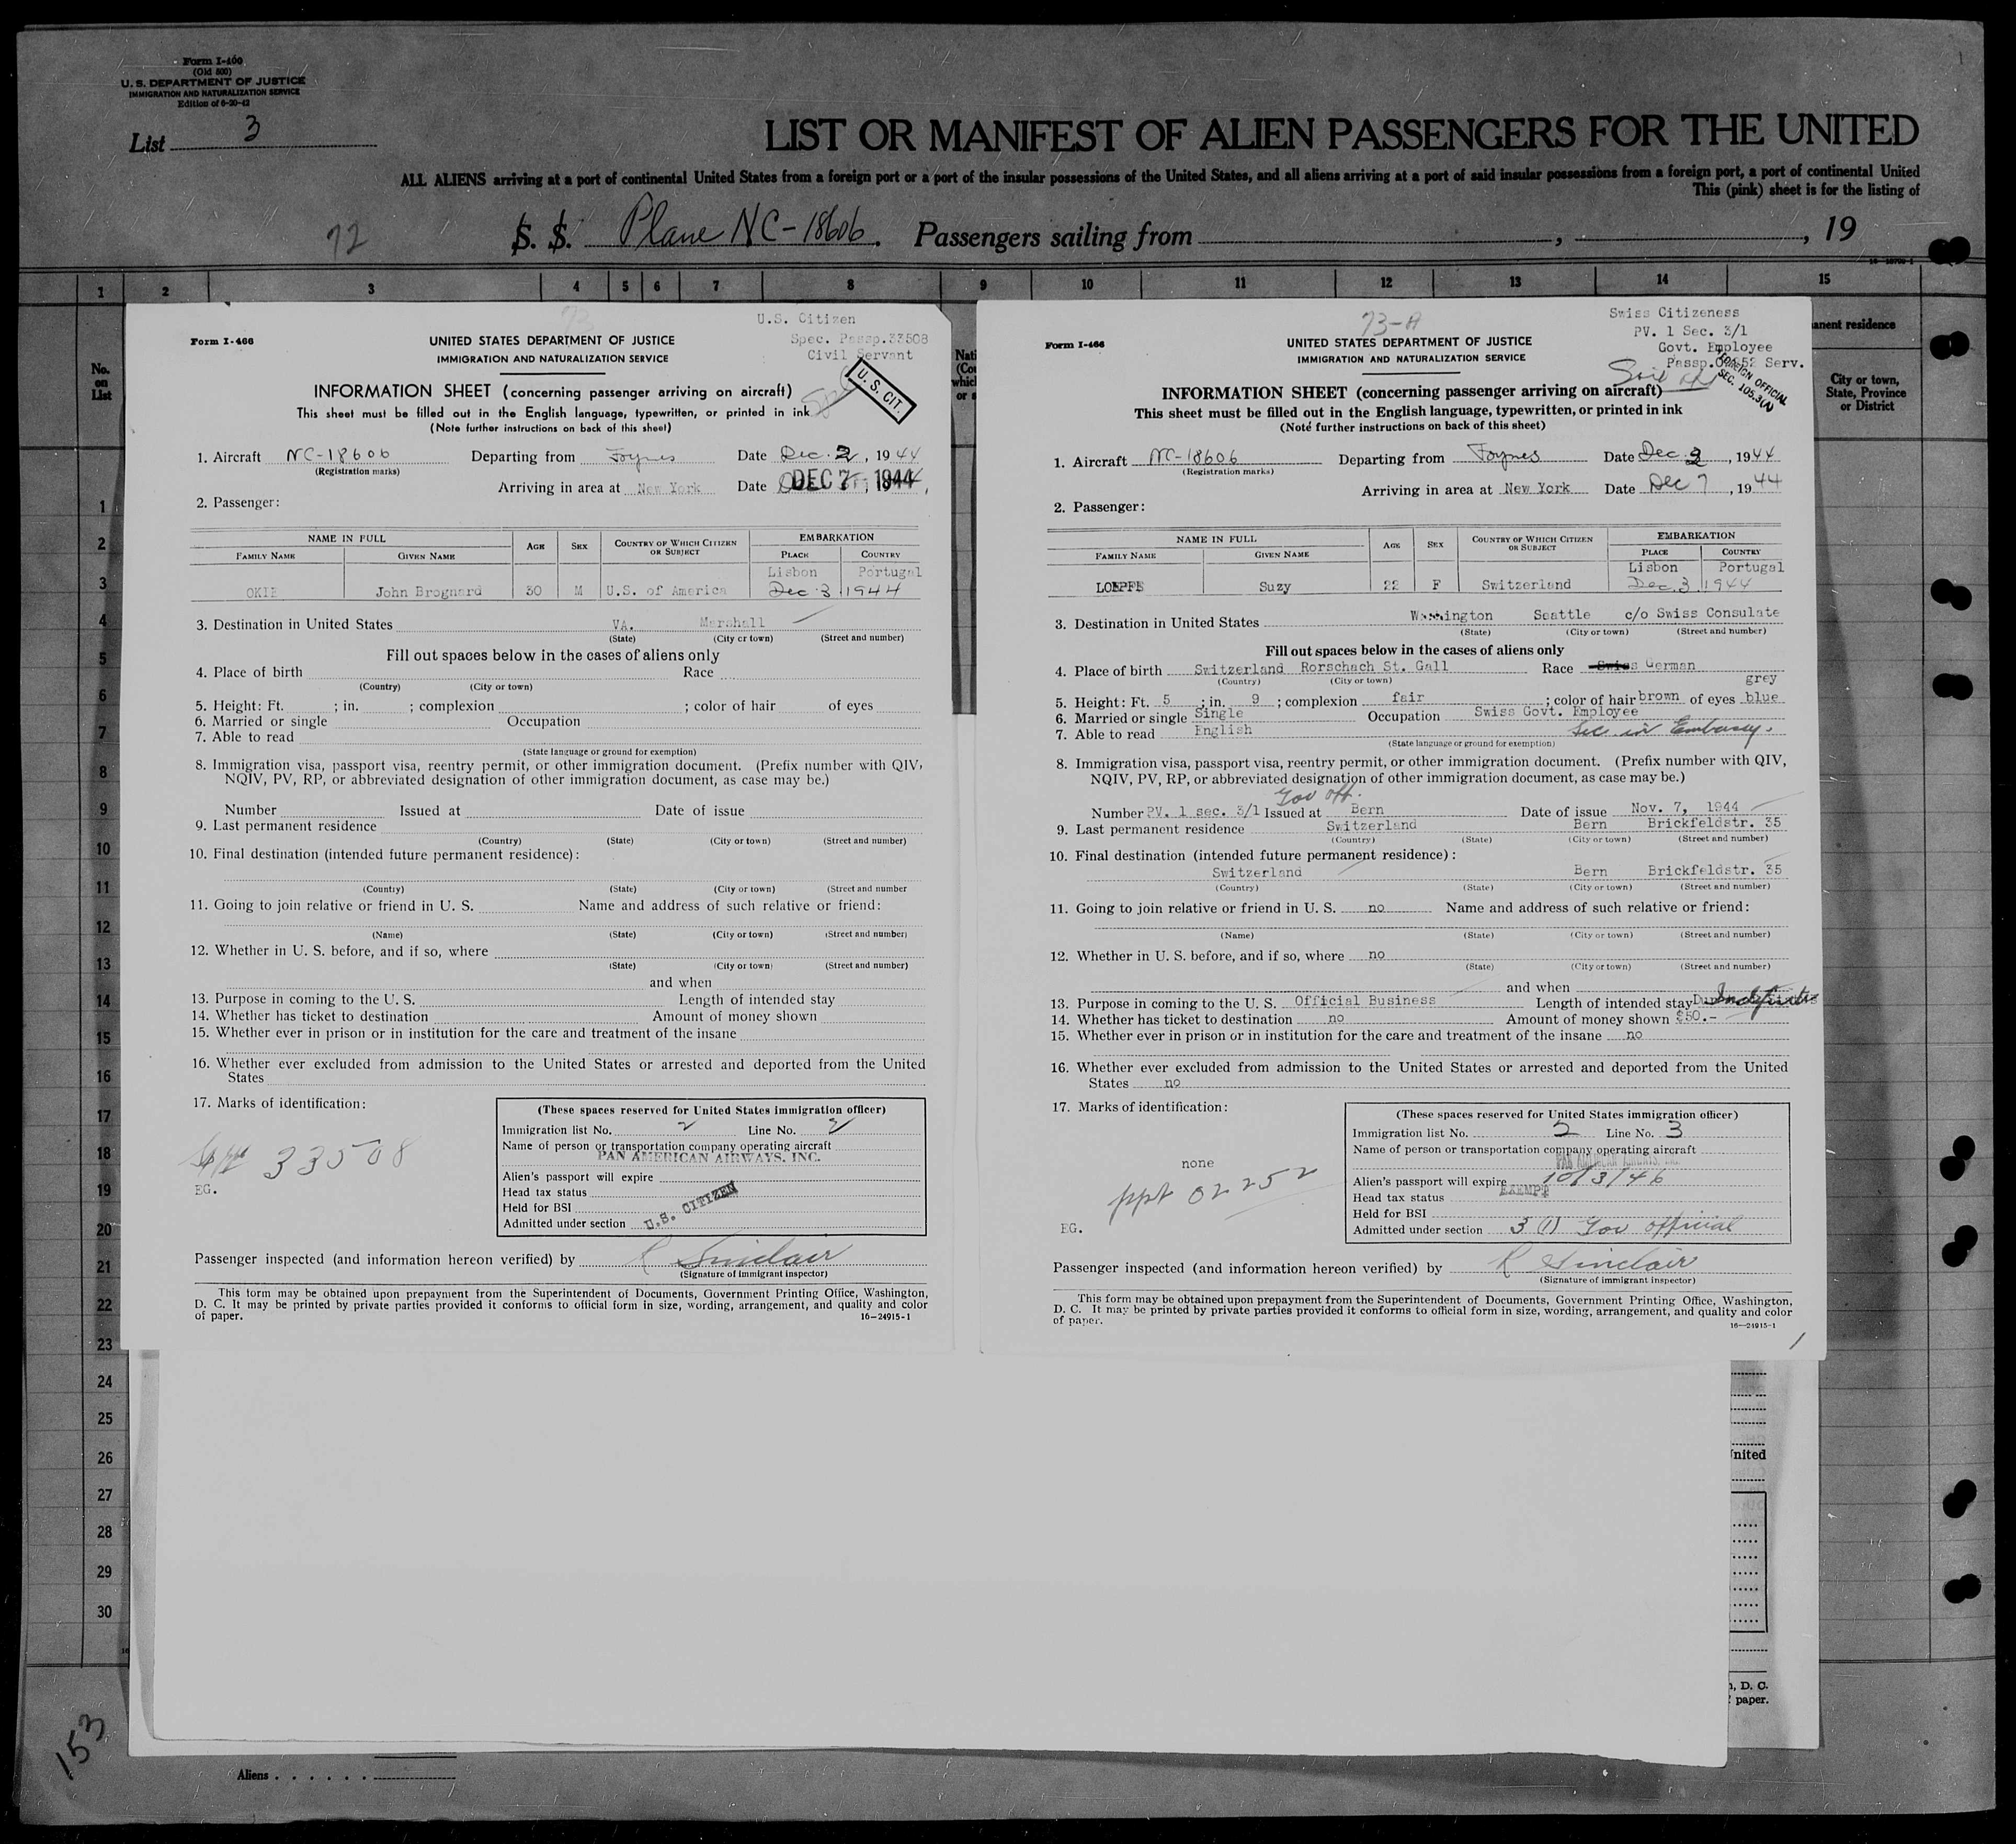 Form I-466
(Old 500)
U. S. DEPARTMENT OF JUSTICE
IMMIGRATION AND NATURALIZATION SERVICE
Edition of 6-20-42
List 3
LIST OR MANIFEST OF ALIEN PASSENGERS FOR THE UNITED
ALL ALIENS arriving at a port of continental United States from a foreign port or a port of the insular possessions of the United States, and all aliens arriving at a port of said insular possessions from a foreign port, a port of continental United
This (pink) sheet is for the listing of
72
S. S. Plane NC-18606. Passengers sailing from , , 19
1 2 3 4 5 6 7 8 9 10 11 12 13 14 15
No. on List
anent residence
City or town, State, Province or District
73
U.S. Citizen
Spec. Passp.33508
Civil Servant
Form I-466
UNITED STATES DEPARTMENT OF JUSTICE
IMMIGRATION AND NATURALIZATION SERVICE
U. S. CIT.
INFORMATION SHEET (concerning passenger arriving on aircraft)
This sheet must be filled out in the English language, typewritten, or printed in ink
(Note further instructions on back of this sheet)
1. Aircraft NC-18606 Departing from Foynes Date Dec. 2, 1944
(Registration marks)
Arriving in area at New York Date DEC 7 1944,
2. Passenger:
NAME IN FULL
FAMILY NAME GIVEN NAME AGE SEX COUNTRY OF WHICH CITIZEN OR SUBJECT EMBARKATION PLACE COUNTRY
Lisbon Portugal
OKIE John Brognard 30 M U.S. of America Dec. 3 1944
3. Destination in United States VA. Marshall
(State) (City or town) (Street and number)
Fill out spaces below in the cases of aliens only
4. Place of birth Race
(Country) (City or town)
5. Height: Ft. ; in. ; complexion ; color of hair of eyes
6. Married or single Occupation
7. Able to read
(State language or ground for exemption)
8. Immigration visa, passport visa, reentry permit, or other immigration document. (Prefix number with QIV,
NQIV, PV, RP, or abbreviated designation of other immigration document, as case may be.)
Number Issued at Date of issue
9. Last permanent residence
(Country) (State) (City or town) (Street and number)
10. Final destination (intended future permanent residence):
(Country) (State) (City or town) (Street and number
11. Going to join relative or friend in U. S. Name and address of such relative or friend:
(Name) (State) (City or town) (Street and number)
12. Whether in U. S. before, and if so, where
(State) (City or town) (Street and number)
and when
13. Purpose in coming to the U. S. Length of intended stay
14. Whether has ticket to destination Amount of money shown
15. Whether ever in prison or in institution for the care and treatment of the insane
16. Whether ever excluded from admission to the United States or arrested and deported from the United
States
17. Marks of identification:
33508
EG.
(These spaces reserved for United States immigration officer)
Immigration list No. 2 Line No. 2
Name of person or transportation company operating aircraft
PAN AMERICAN AIRWAYS, INC.
Alien's passport will expire
Head tax status
Held for BSI
Admitted under section U.S. CITIZEN
Passenger inspected (and information hereon verified) by R Sinclair
(Signature of immigrant inspector)
This form may be obtained upon prepayment from the Superintendent of Documents, Government Printing Office, Washington,
D. C. It may be printed by private parties provided it conforms to official form in size, wording, arrangement, and quality and color
of paper.
16—24915-1
73-A
Swiss Citizeness
PV. 1 Sec. 3/1
Govt. Employee
Serv.
FOREIGN OFFICIAL
SEC. 105.3(A)
Form I-466
UNITED STATES DEPARTMENT OF JUSTICE
IMMIGRATION AND NATURALIZATION SERVICE
INFORMATION SHEET (concerning passenger arriving on aircraft)
This sheet must be filled out in the English language, typewritten, or printed in ink
(Note further instructions on back of this sheet)
1. Aircraft NC-18606 Departing from Foynes Date Dec , 1944
(Registration marks)
Arriving in area at New York Date Dec 7, 1944
2. Passenger:
NAME IN FULL
FAMILY NAME GIVEN NAME AGE SEX COUNTRY OF WHICH CITIZEN OR SUBJECT EMBARKATION PLACE COUNTRY
Lisbon Portugal
Suzy 22 F Switzerland Dec. 3 1944
3. Destination in United States Washington Seattle c/o Swiss Consulate
(State) (City or town) (Street and number)
Fill out spaces below in the cases of aliens only
4. Place of birth Switzerland Rorschach St. Gall Race Swiss German
(Country) (City or town)
grey
5. Height: Ft. 5 ; in. 9 ; complexion fair ; color of hair brown of eyes blue
6. Married or single Single Occupation Swiss Govt. Employee
7. Able to read English Sec. in Embassy.
(State language or ground for exemption)
8. Immigration visa, passport visa, reentry permit, or other immigration document. (Prefix number with QIV,
NQIV, PV, RP, or abbreviated designation of other immigration document, as case may be.)
Gov off.
Number PV. 1 sec. 3/1 Issued at Bern Date of issue Nov. 7, 1944
9. Last permanent residence Switzerland Bern Brickfeldstr. 35
(Country) (State) (City or town) (Street and number)
10. Final destination (intended future permanent residence):
Switzerland Bern Brickfeldstr. 35
(Country) (State) (City or town) (Street and number)
11. Going to join relative or friend in U. S. no Name and address of such relative or friend:
(Name) (State) (City or town) (Street and number)
12. Whether in U. S. before, and if so, where no
(State) (City or town) (Street and number)
and when
13. Purpose in coming to the U. S. Official Business Length of intended stay Indefinite
14. Whether has ticket to destination no Amount of money shown $50.-
15. Whether ever in prison or in institution for the care and treatment of the insane no
16. Whether ever excluded from admission to the United States or arrested and deported from the United
States no
17. Marks of identification:
none
ppt 02252
EG.
(These spaces reserved for United States immigration officer)
Immigration list No. 2 Line No. 3
Name of person or transportation company operating aircraft
PAN AMERICAN AIRWAYS, INC.
Alien's passport will expire 10/3/46
Head tax status EXEMPT
Held for BSI
Admitted under section 3 (1) Gov official
Passenger inspected (and information hereon verified) by R Sinclair
(Signature of immigrant inspector)
This form may be obtained upon prepayment from the Superintendent of Documents, Government Printing Office, Washington,
D. C. It may be printed by private parties provided it conforms to official form in size, wording, arrangement, and quality and color
of paper.
16—24915-1
1
2
3
4
5
6
7
8
9
10
11
12
13
14
15
16
17
18
19
20
21
22
23
24
25
26
27
28
29
30
nited
, D. C.
paper.
153
Aliens